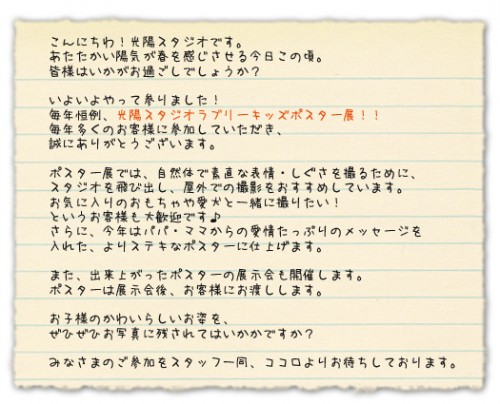 こんにちわ！光陽スタジオです。
あたたかい陽気が春を感じさせる今日この頃。
皆様はいかがお過ごしでしょうか？
いよいよやって参りました！
毎年恒例、光陽スタジオラブリーキッズポスター展！！
毎年多くのお客様に参加していただき、
誠にありがとうございます。
ポスター展では、自然体で素直な表情・しぐさを撮るために、
スタジオを飛び出し、屋外での撮影をおすすめしています。
お気に入りのおもちゃや愛犬と一緒に撮りたい！
というお客様も大歓迎です♪
さらに、今年はパパ・ママからの愛情たっぷりのメッセージを
入れた、よりステキなポスターに仕上げます。
また、出来上がったポスターの展示会も開催します。
ポスターは展示会後、お客様にお渡しします。
お子様のかわいらしいお姿を、
ぜひぜひお写真に残されてはいかがですか？
みなさまのご参加をスタッフ一同、ココロよりお待ちしております。